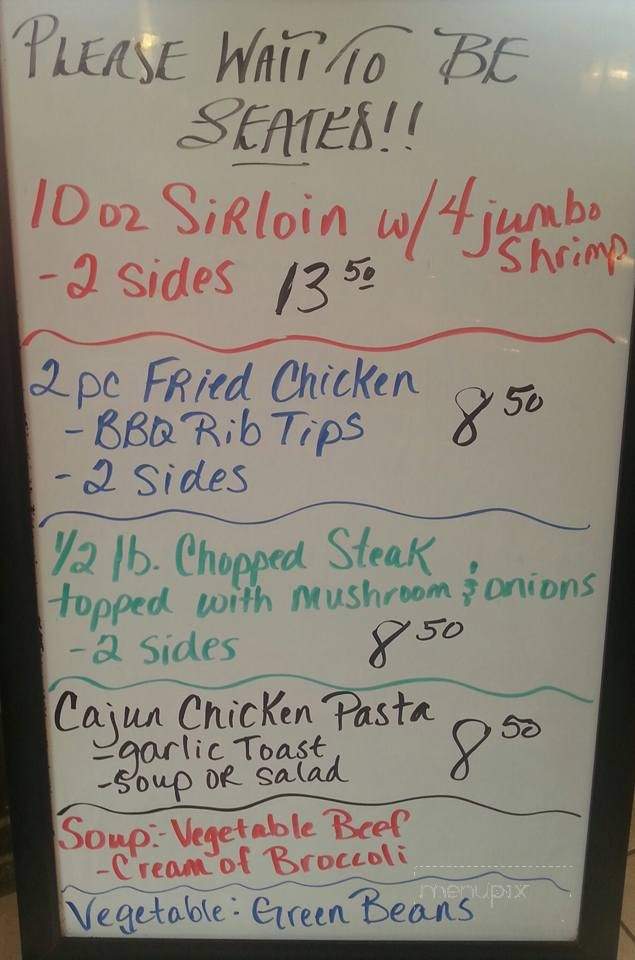 PLEASE WAIT TO BE
SEATED!!
10 oz SiRloin w/ 4 jumbo
Shrimp
- 2 sides 13 50
2 pc FRied Chicken
- BBQ Rib Tips 8 50
- 2 Sides
1/2 lb. Chopped Steak
topped with mushroom & onions
- 2 sides 8 50
Cajun Chicken Pasta
- garlic Toast 8 50
- soup OR salad
Soup: - Vegetable Beef
- Cream of Broccoli
menupix
Vegetable: Green Beans